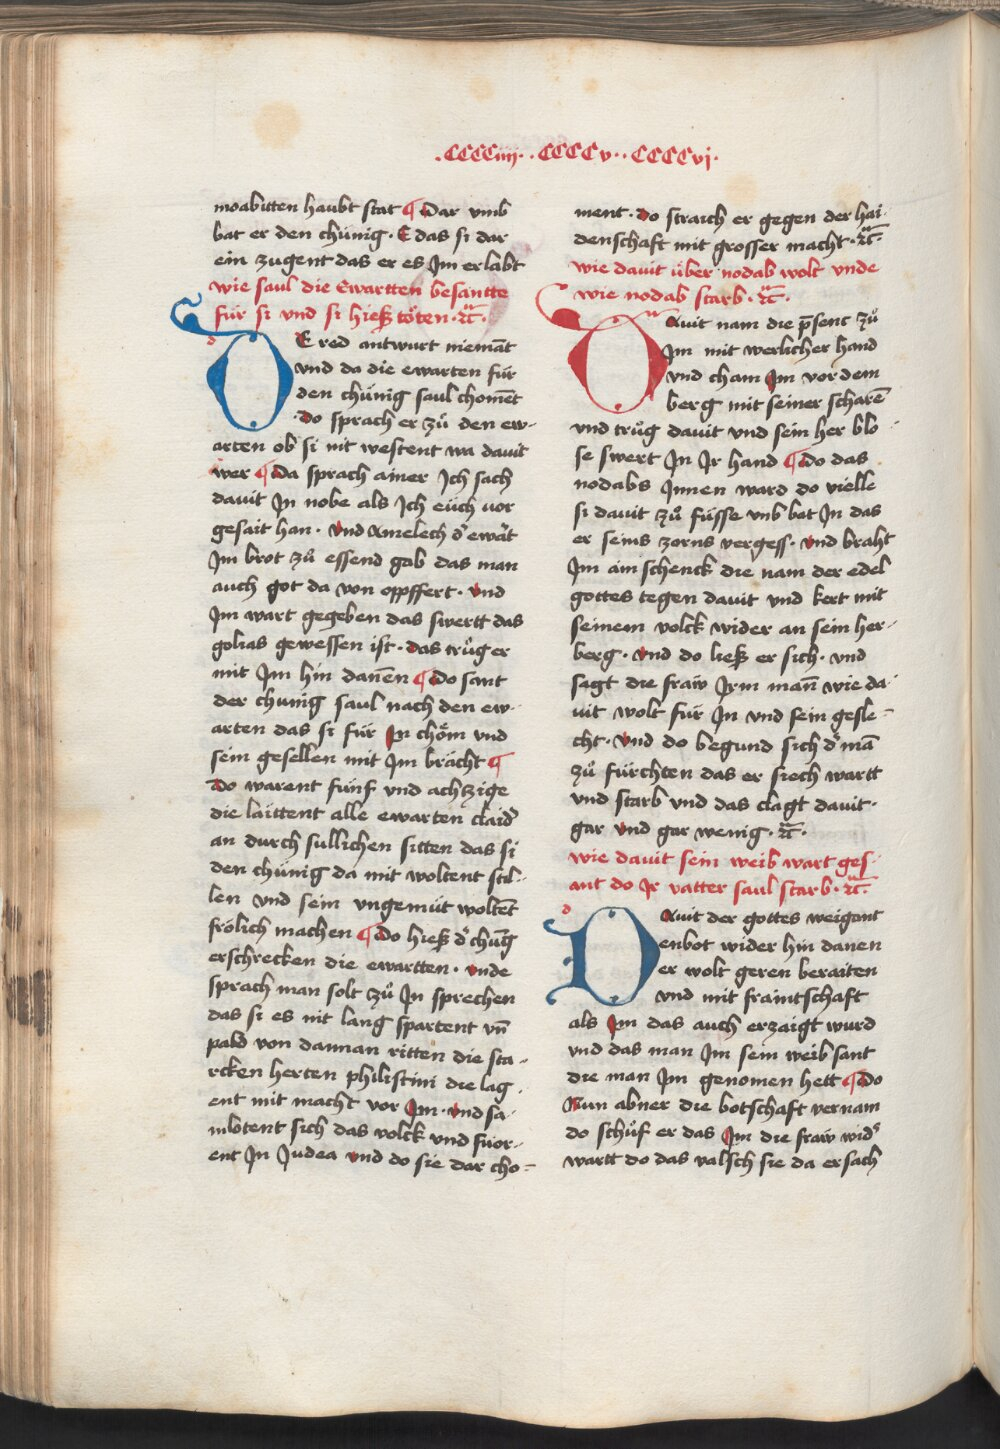 .CCCCiiij. .CCCCv.. CCCCvj.
moabitten haubt stat ¶ Dar vmb
bat er den chünig. E das si dar
ein zugent das er es Jm erlabt
wie saul die Ewartten besantte
für si vnd si hieß töten. ꝛc̈.
DE red antwurt niemāt
vnd da die ewarten für
den chünig saul chomēt
.do sprach er zů den ew-
arten ob si nit westent wa dauit
wer ¶ Da sprach ainer Jch sach
dauit Jn nobe als Jch euch vor
gesait han. Vnd Amelech d' ewa͛t
Jm brot zů essend gab das man
auch got da von oppffert. vnd
Jm wart gegeben das swertt das
golias gewessen ist. das trůg er
mit Jm hin danēn ¶ Do sant
der chunig saul nach den ew-
arten das si für Jn chöm vnd
sein gesellen mit Jm brächt ¶
Do warent fünf vnd achzige
die laittent alle ewarten claid'
an durch sullichen sitten das si
den chünig da mit woltent stil-
len vnd sein vngemüt woltēt
frölich machen ¶ Do hieß d' chunīg
erschrecken die ewartten. vnde
sprach man solt zů Jn sprechen
das si es nit lang spartent vn̄
pald von dannan ritten die sta-
rcken herten philistini die lag
ent mit macht vor Jm. vnd sa-
mlotent sich das volck vnd fuor-
ent Jn Judea vnd do sie dar cho=
ment. do straich er gegen der hai-
denschaft mit grosser macht. ꝛc̈.
wie dauit über nodab wolt vnde
wie nodab starb. ꝛc̈.
DAuit nam die p̄sent zů
Jm mit werlicher hand
vnd cham Jm vor dem
berg mit seiner scharē
vnd trůg dauit vnd sein her blo-
se swert Jn Jr hand ¶ Do das
nodabs Jnnen ward do vielle
si dauit zů füsse vnb bat Jn das
er seins zorns vergess. vnd braht
Jm ain schenck die nam der edel
gottes tegen dauit vnd kert mit
seinem volck wider an sein her-
berg. vnd do ließ er sich. vnd
sagt die fraw Jrm man̄ wie da-
uit wolt für Jn vnd sein gesle-
cht. vnd do begund sich d' mā
zů fürchten das er siech wartt
vnd starb vnd das clagt dauit.
gar vnd gar wenig. ꝛc̈.
wie dauit sein weib wart ges-
ant do Jr vatter saul starb. ꝛc̈.
DAuit der gottes weigant
enbot wider hin danen
er wolt geren beraiten
vnd mit fraintschaft
als Jm das auch erzaigt wurd
vnd das man Jm sein weib sant
die man Jm genomen hett ¶ Do
Nun abner die botschaft vernam
do schůf er das Jm die fraw wid'
wartt do das valsch sie da ersach